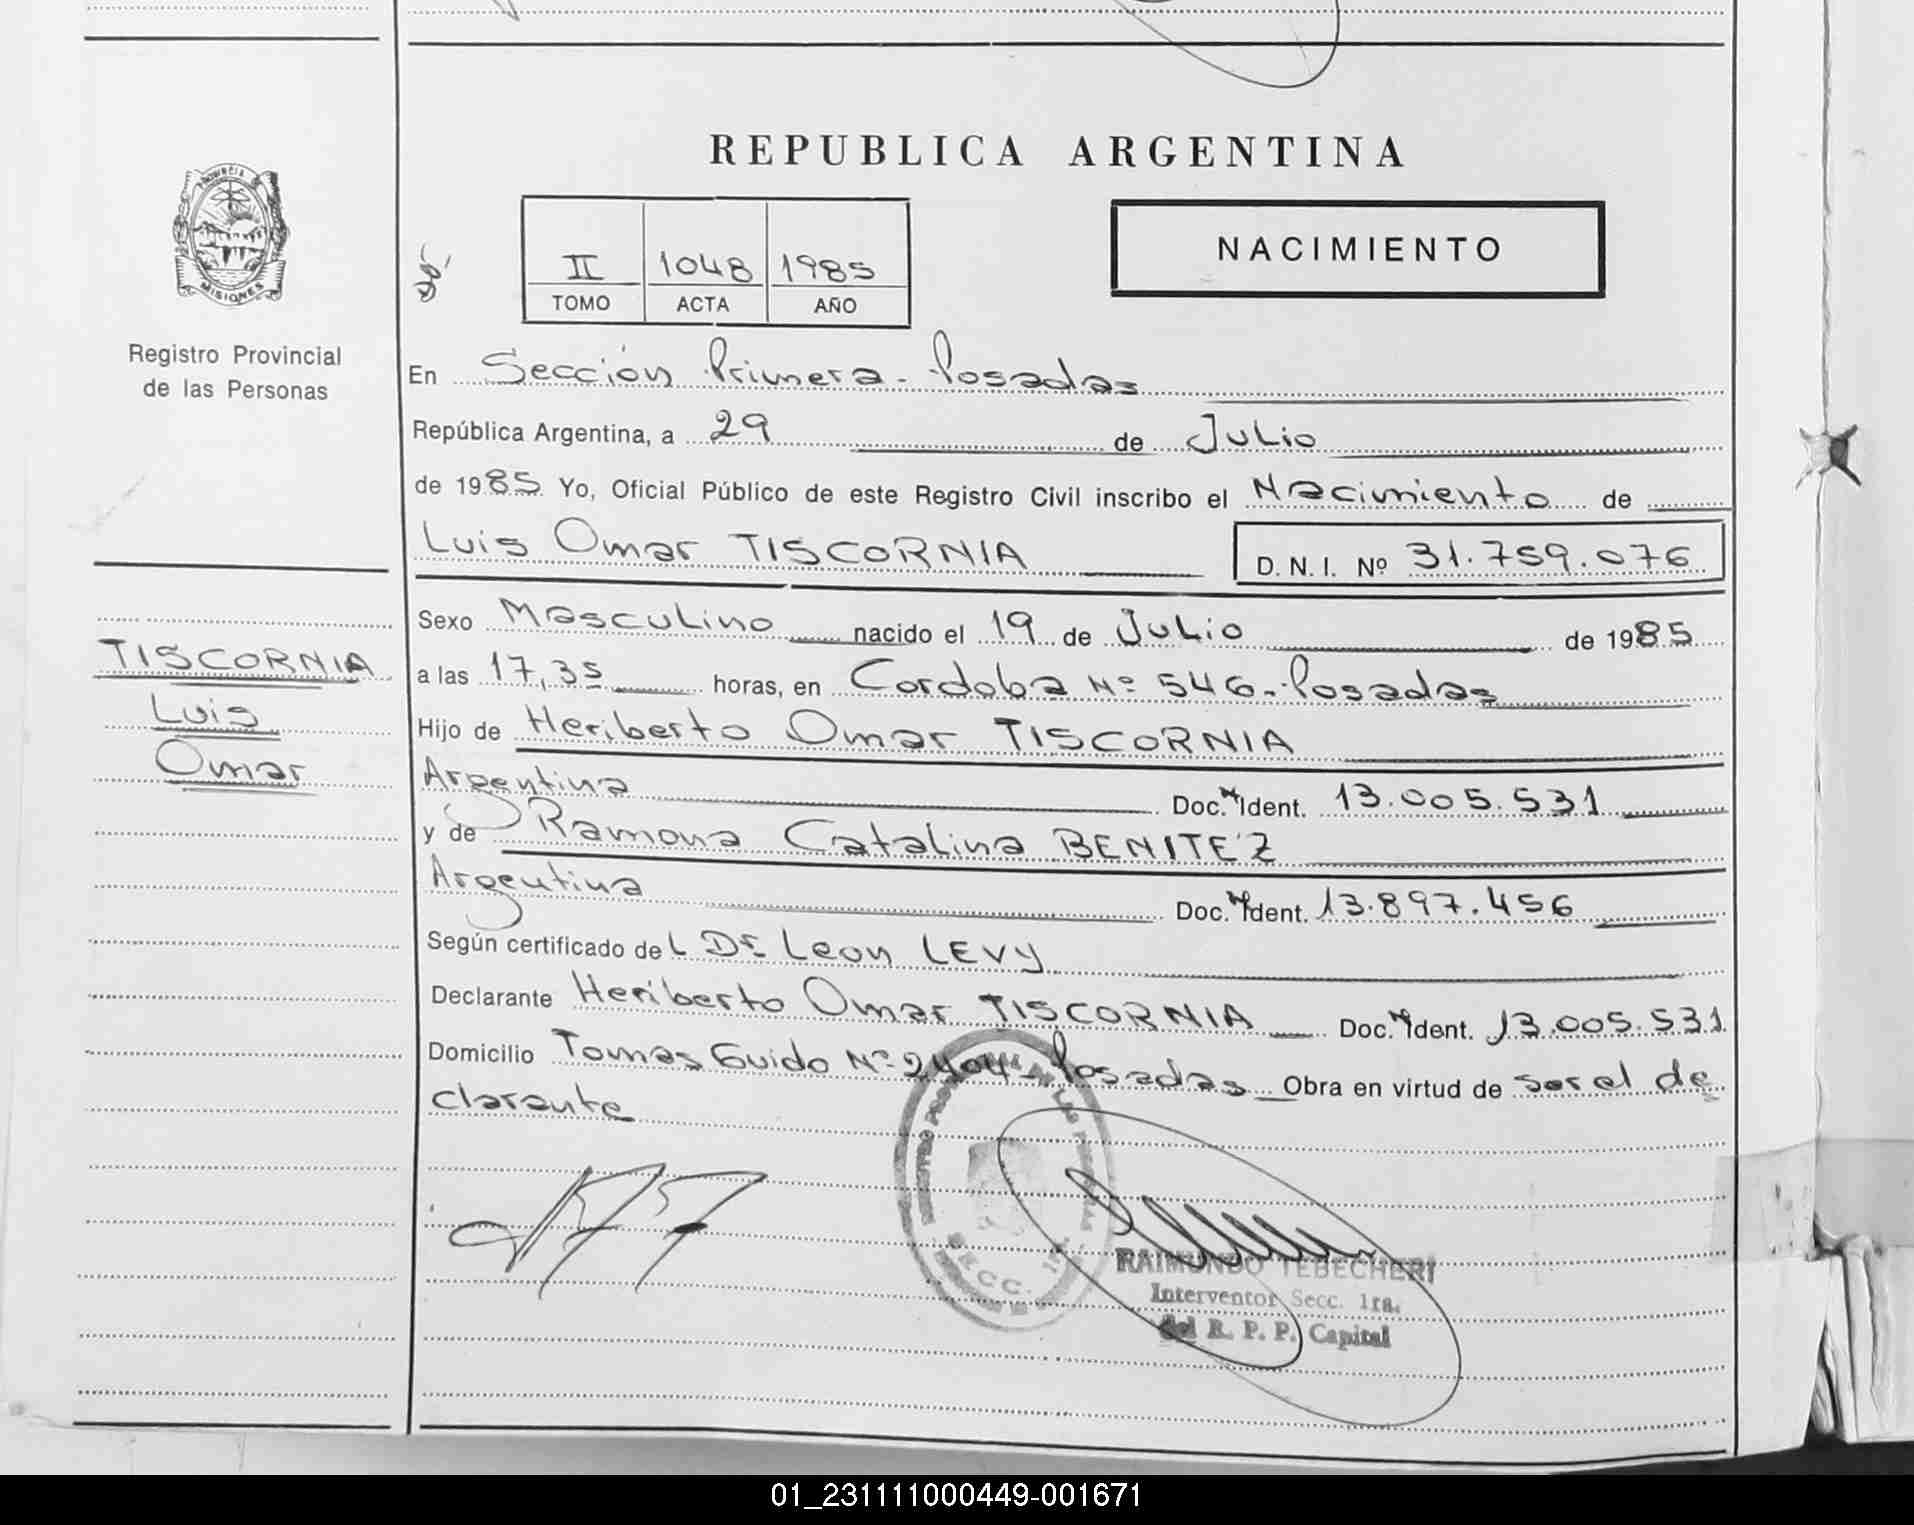 REPUBLICA ARGENTINA
PROVINCIA DE
MISIONES
Registro Provincial
de las Personas
II 1048 1985
TOMO ACTA AÑO
NACIMIENTO
En Sección Primera - Posadas
República Argentina, a 29 de Julio
de 1985 Yo, Oficial Público de este Registro Civil inscribo el Nacimiento de
Luis Omar TISCORNIA D. N. I. Nº 31.759.076
Sexo Masculino nacido el 19 de Julio de 1985
a las 17,35 horas, en Cordoba Nº 546 - Posadas
Hijo de Heriberto Omar TISCORNIA
Argentina Doc. Ident. 13.005.531
y de Ramona Catalina BENITEZ
Argentina Doc. Ident. 13.897.456
Según certificado del Dr. Leon LEVY
Declarante Heriberto Omar TISCORNIA Doc. Ident. 13.005.531
Domicilio Tomas Guido Nº 2404 - Posadas Obra en virtud de ser el de
clarante
TISCORNIA
Luis
Omar
SECC. 1ra.
RAIMUNDO TEBECHERI
Interventor Secc. 1ra.
del R. P. P. Capital
01_231111000449-001671